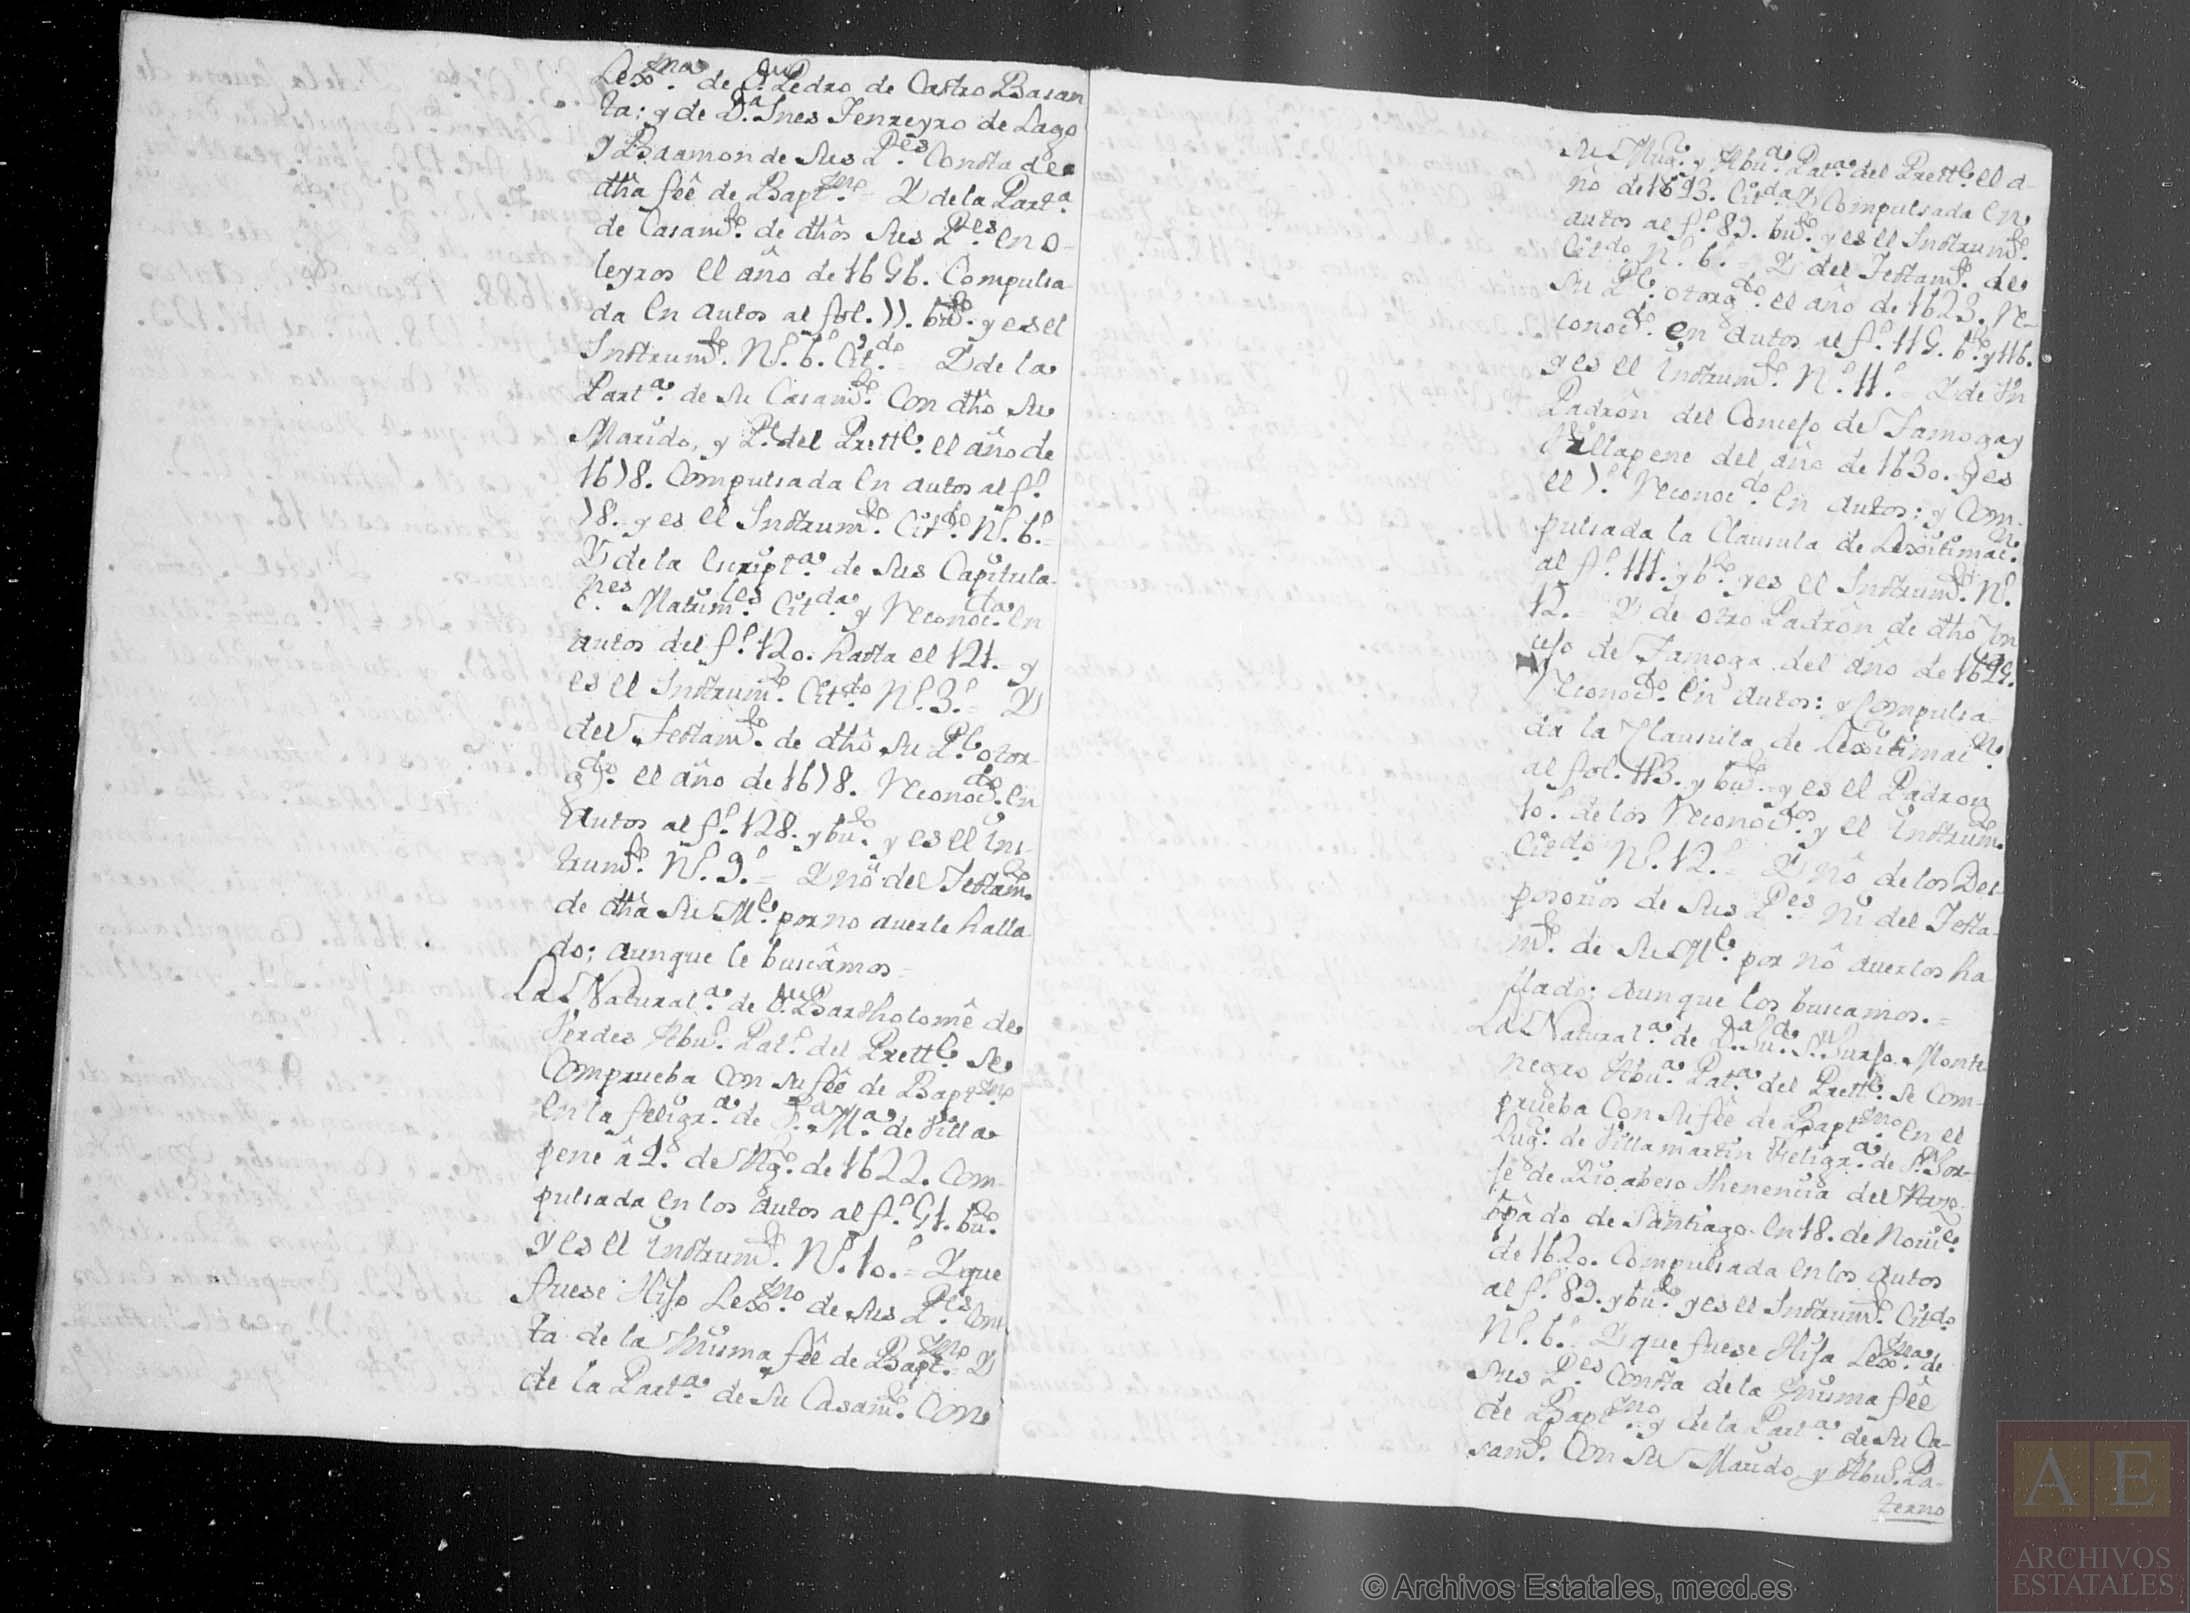 Lexma. de Dn. Pedro de Castro Basan
ta: y de Da. Ines Tenreyro de Lago
y Baamonde sus Pes. Consta de
dha fêe de Baptmo. = Y de la Parta.
de Casamto. de dhos sus Pes. en O-
leyros el año de 1656. Compulsa-
da en autos al fol. 77. bto. y es el
Instrumto. No. 6.º Citdo. = Y de la
Parta. de su Casamto. Con dho su
Marido, y Pe. del Prette. el año de
1678. Compulsada en autos al fo.
78. y es el Instrumto. Citdo. No. 6.º =
Y de la Scripta. de sus Capitula-
nes. Matrimles. Citda. y Reconocda. en
autos del fo. 120. hasta el 121. y
es el Instrumto. Citdo. No. 3.º = Y
del Testamto. de dho su Pe. otor-
gdo. el año de 1678. Reconocdo. en
autos al fo. 128. y bto. y es el Ins-
trumto. No. 9.º = Y nô del Testamto.
de dha su Me. por no averle halla
do; aunque le buscâmos =
La Naturala. de Dn. Bartholomê de
Verdes Abuo. Pato. del Prette. se
Comprueba con su fêe de Baptmo.
en la feligra. de Sta. Ma. de Villa
pene â 2. de Ago. de 1622. Com-
pulsada en los autos al fo. 51. bto.
y es el Instrumto. No. 10. = Y que
fuese Hijo Lexmo. de sus Pes. Cons
ta de la misma fêe de Baptmo. = Y
de la Parta. de su Casamto. Con
su Mugr. y Abua. Pata. del Prette. el a-
ño de 1653. Citda. Y Compulsada en
autos al fo. 89. bto. y es el Instrumto.
Citdo. No. 6.º = Y del Testamto. de
su Pe. otorgdo. el año de 1623. Re-
conocdo. en autos al fo. 115. bto. y 116.
y es el Instrumto. No. 11.º = Y de un
Padrôn del Concejo de Tamoga y
Villapene del año de 1630. y es
el 7.º Reconocdo. en autos: y Com-
pulsada la Clausula de Lexitimacn.
al fo. 111. y bto. y es el Instrumto. No.
12. = Y de otro Padrôn de dho Con
cejo de Tamoga del año de 1625.
Reconocdo. en autos: y Compulsa-
da la Clausula de Lexitimacn.
al fol. 113. y bto. y es el Padron
10.º de los Reconocdos. y el Instrumto.
Citdo. No. 12.º = Y nô de los Des-
posorios de sus Pes. ni del Testa-
mto. de su Me. por nô averlos ha
llado; aunque los buscamos. =
La Naturala. de Da. Monte
negro Abua. Pata. del Prette. se Com-
prueba con su fêe de Baptmo. en el
Lugr. de Villamartin feligra. de Sn. Jor-
je de Rioabeso thenencia del Arzo-
bpâdo de Santiago. en 18. de Nove.
de 1620. Compulsada en los autos
al fo. 89. y bto. y es el Instrumto. Citdo.
No. 6.º = Y que fuese Hija Lexma. de
sus Pes. Consta de la misma fêe
de Baptmo. y de la Parta. de su Ca-
samto. Con su Marido, y Abuo. Pa-
terno
© Archivos Estatales, mecd.es
AE
ARCHIVOS
ESTATALES